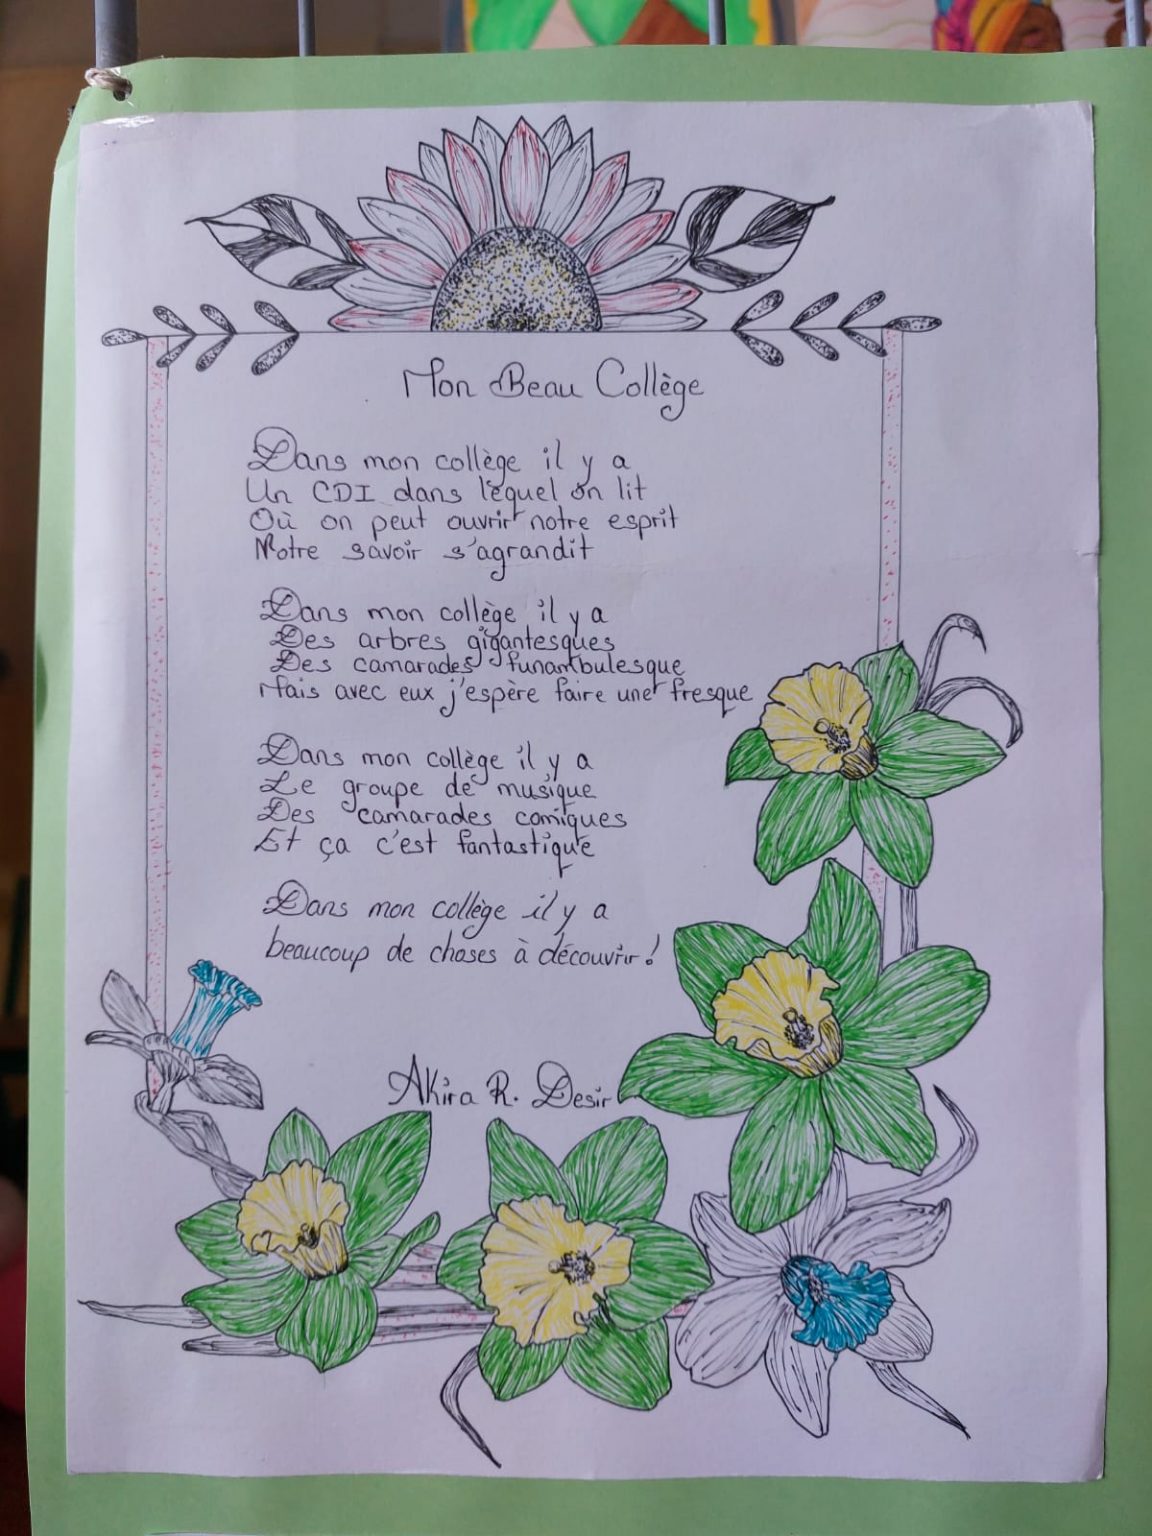 Mon Beau Collège
Dans mon collège il y a
Un CDI dans lequel on lit
Où on peut ouvrir notre esprit
Notre savoir s'agrandit
Dans mon collège il y a
Des arbres gigantesques
Des camarades funambulesque
Mais avec eux j'espère faire une fresque
Dans mon collège il y a
Le groupe de musique
Des camarades comiques
Et ça c'est fantastique
Dans mon collège il y a
beaucoup de choses à découvrir !
Akira R. Desir